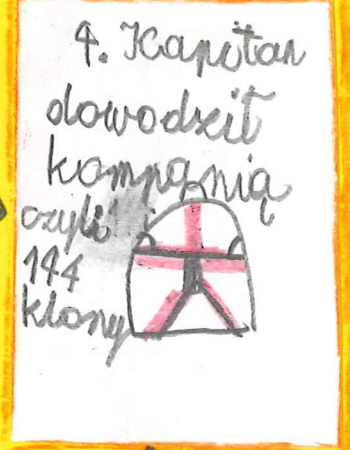 4. Kapitan
dowodził
kompanią
czyli
144
klony